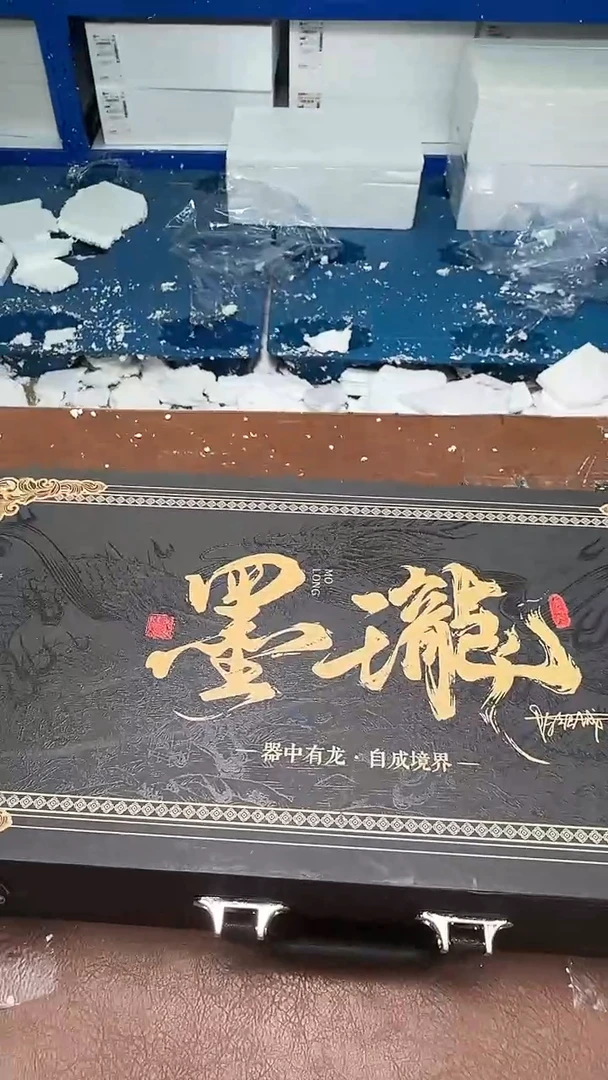 墨瓏
MO
LONG
器中有龙·自成境界